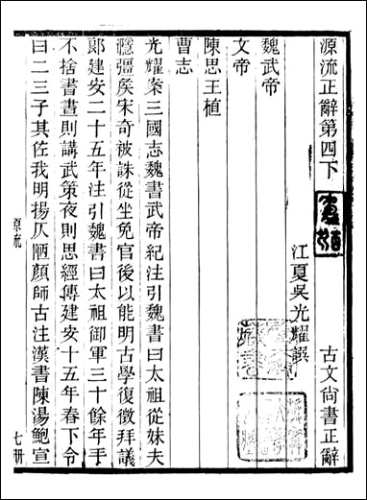 源流正辭第四下
古文尚書正辭
江夏吳光耀譔
魏武帝
文帝
陳思王植
曹志
光耀案三國志魏書武帝紀注引魏書曰太祖從妹夫
㶏彊矦宋奇被誅從坐免官後以能明古學復徵拜議
郞建安二十五年注引魏書曰太祖御軍三十餘年手
不捨書晝則講武策夜則思經傳建安十五年春下令
曰二三子其佐我明揚仄陋顏師古注漢書陳湯鮑宣
源流
七冊